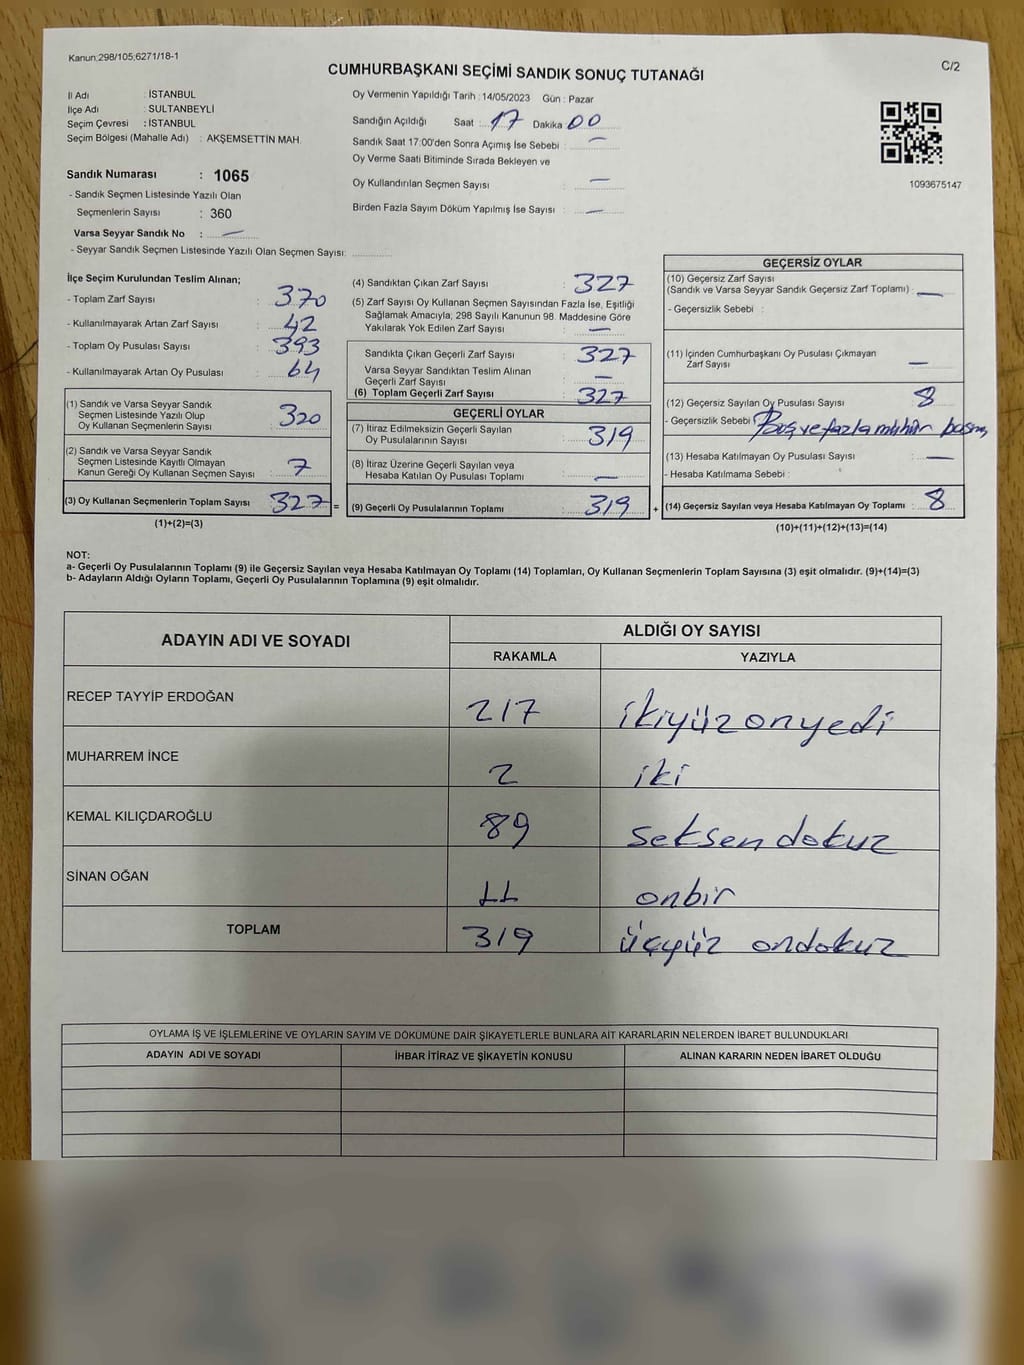 Kanun;298/105;6271/18-1
C/2
CUMHURBAŞKANI SEÇİMİ SANDIK SONUÇ TUTANAĞI
İl Adı : İSTANBUL
İlçe Adı : SULTANBEYLİ
Seçim Çevresi : İSTANBUL
Seçim Bölgesi (Mahalle Adı) : AKŞEMSETTİN MAH.
Oy Vermenin Yapıldığı Tarih : 14/05/2023 Gün : Pazar
Sandığın Açıldığı Saat : 17 Dakika 00
Sandık Saat 17:00'den Sonra Açımış İse Sebebi : —
Oy Verme Saati Bitiminde Sırada Bekleyen ve
Oy Kullandırılan Seçmen Sayısı : —
Birden Fazla Sayım Döküm Yapılmış İse Sayısı : —
1093675147
Sandık Numarası : 1065
- Sandık Seçmen Listesinde Yazılı Olan
Seçmenlerin Sayısı : 360
Varsa Seyyar Sandık No : —
- Seyyar Sandık Seçmen Listesinde Yazılı Olan Seçmen Sayısı:
İlçe Seçim Kurulundan Teslim Alınan;
- Toplam Zarf Sayısı : 370
- Kullanılmayarak Artan Zarf Sayısı : 42
- Toplam Oy Pusulası Sayısı : 393
- Kullanılmayarak Artan Oy Pusulası : 64
(1) Sandık ve Varsa Seyyar Sandık
Seçmen Listesinde Yazılı Olup
Oy Kullanan Seçmenlerin Sayısı : 320
(2) Sandık ve Varsa Seyyar Sandık
Seçmen Listesinde Kayıtlı Olmayan
Kanun Gereği Oy Kullanan Seçmen Sayısı : 7
(3) Oy Kullanan Seçmenlerin Toplam Sayısı : 327 =
(1)+(2)=(3)
(4) Sandıktan Çıkan Zarf Sayısı : 327
(5) Zarf Sayısı Oy Kullanan Seçmen Sayısından Fazla İse, Eşitliği
Sağlamak Amacıyla; 298 Sayılı Kanunun 98. Maddesine Göre
Yakılarak Yok Edilen Zarf Sayısı : —
Sandıkta Çıkan Geçerli Zarf Sayısı : 327
Varsa Seyyar Sandıktan Teslim Alınan
Geçerli Zarf Sayısı : —
(6) Toplam Geçerli Zarf Sayısı : 327
GEÇERLİ OYLAR
(7) İtiraz Edilmeksizin Geçerli Sayılan
Oy Pusulalarının Sayısı : 319
(8) İtiraz Üzerine Geçerli Sayılan veya
Hesaba Katılan Oy Pusulası Toplamı : —
(9) Geçerli Oy Pusulalarının Toplamı : 319 +
GEÇERSİZ OYLAR
(10) Geçersiz Zarf Sayısı
(Sandık ve Varsa Seyyar Sandık Geçersiz Zarf Toplamı) : —
- Geçersizlik Sebebi :
(11) İçinden Cumhurbaşkanı Oy Pusulası Çıkmayan
Zarf Sayısı : —
(12) Geçersiz Sayılan Oy Pusulası Sayısı : 8
- Geçersizlik Sebebi : Boş ve fazla mühür
(13) Hesaba Katılmayan Oy Pusulası Sayısı : —
- Hesaba Katılmama Sebebi :
(14) Geçersiz Sayılan veya Hesaba Katılmayan Oy Toplamı : 8
(10)+(11)+(12)+(13)=(14)
NOT:
a- Geçerli Oy Pusulalarının Toplamı (9) ile Geçersiz Sayılan veya Hesaba Katılmayan Oy Toplamı (14) Toplamları, Oy Kullanan Seçmenlerin Toplam Sayısına (3) eşit olmalıdır. (9)+(14)=(3)
b- Adayların Aldığı Oyların Toplamı, Geçerli Oy Pusulalarının Toplamına (9) eşit olmalıdır.
ADAYIN ADI VE SOYADI ALDIĞI OY SAYISI
RAKAMLA YAZIYLA
RECEP TAYYİP ERDOĞAN 217 ikiyüzonyedi
MUHARREM İNCE 2 iki
KEMAL KILIÇDAROĞLU 89 seksen dokuz
SİNAN OĞAN 11 onbir
TOPLAM 319 üçyüz ondokuz
OYLAMA İŞ VE İŞLEMLERİNE VE OYLARIN SAYIM VE DÖKÜMÜNE DAİR ŞİKAYETLERLE BUNLARA AİT KARARLARIN NELERDEN İBARET BULUNDUKLARI
ADAYIN ADI VE SOYADI İHBAR İTİRAZ VE ŞİKAYETİN KONUSU ALINAN KARARIN NEDEN İBARET OLDUĞU